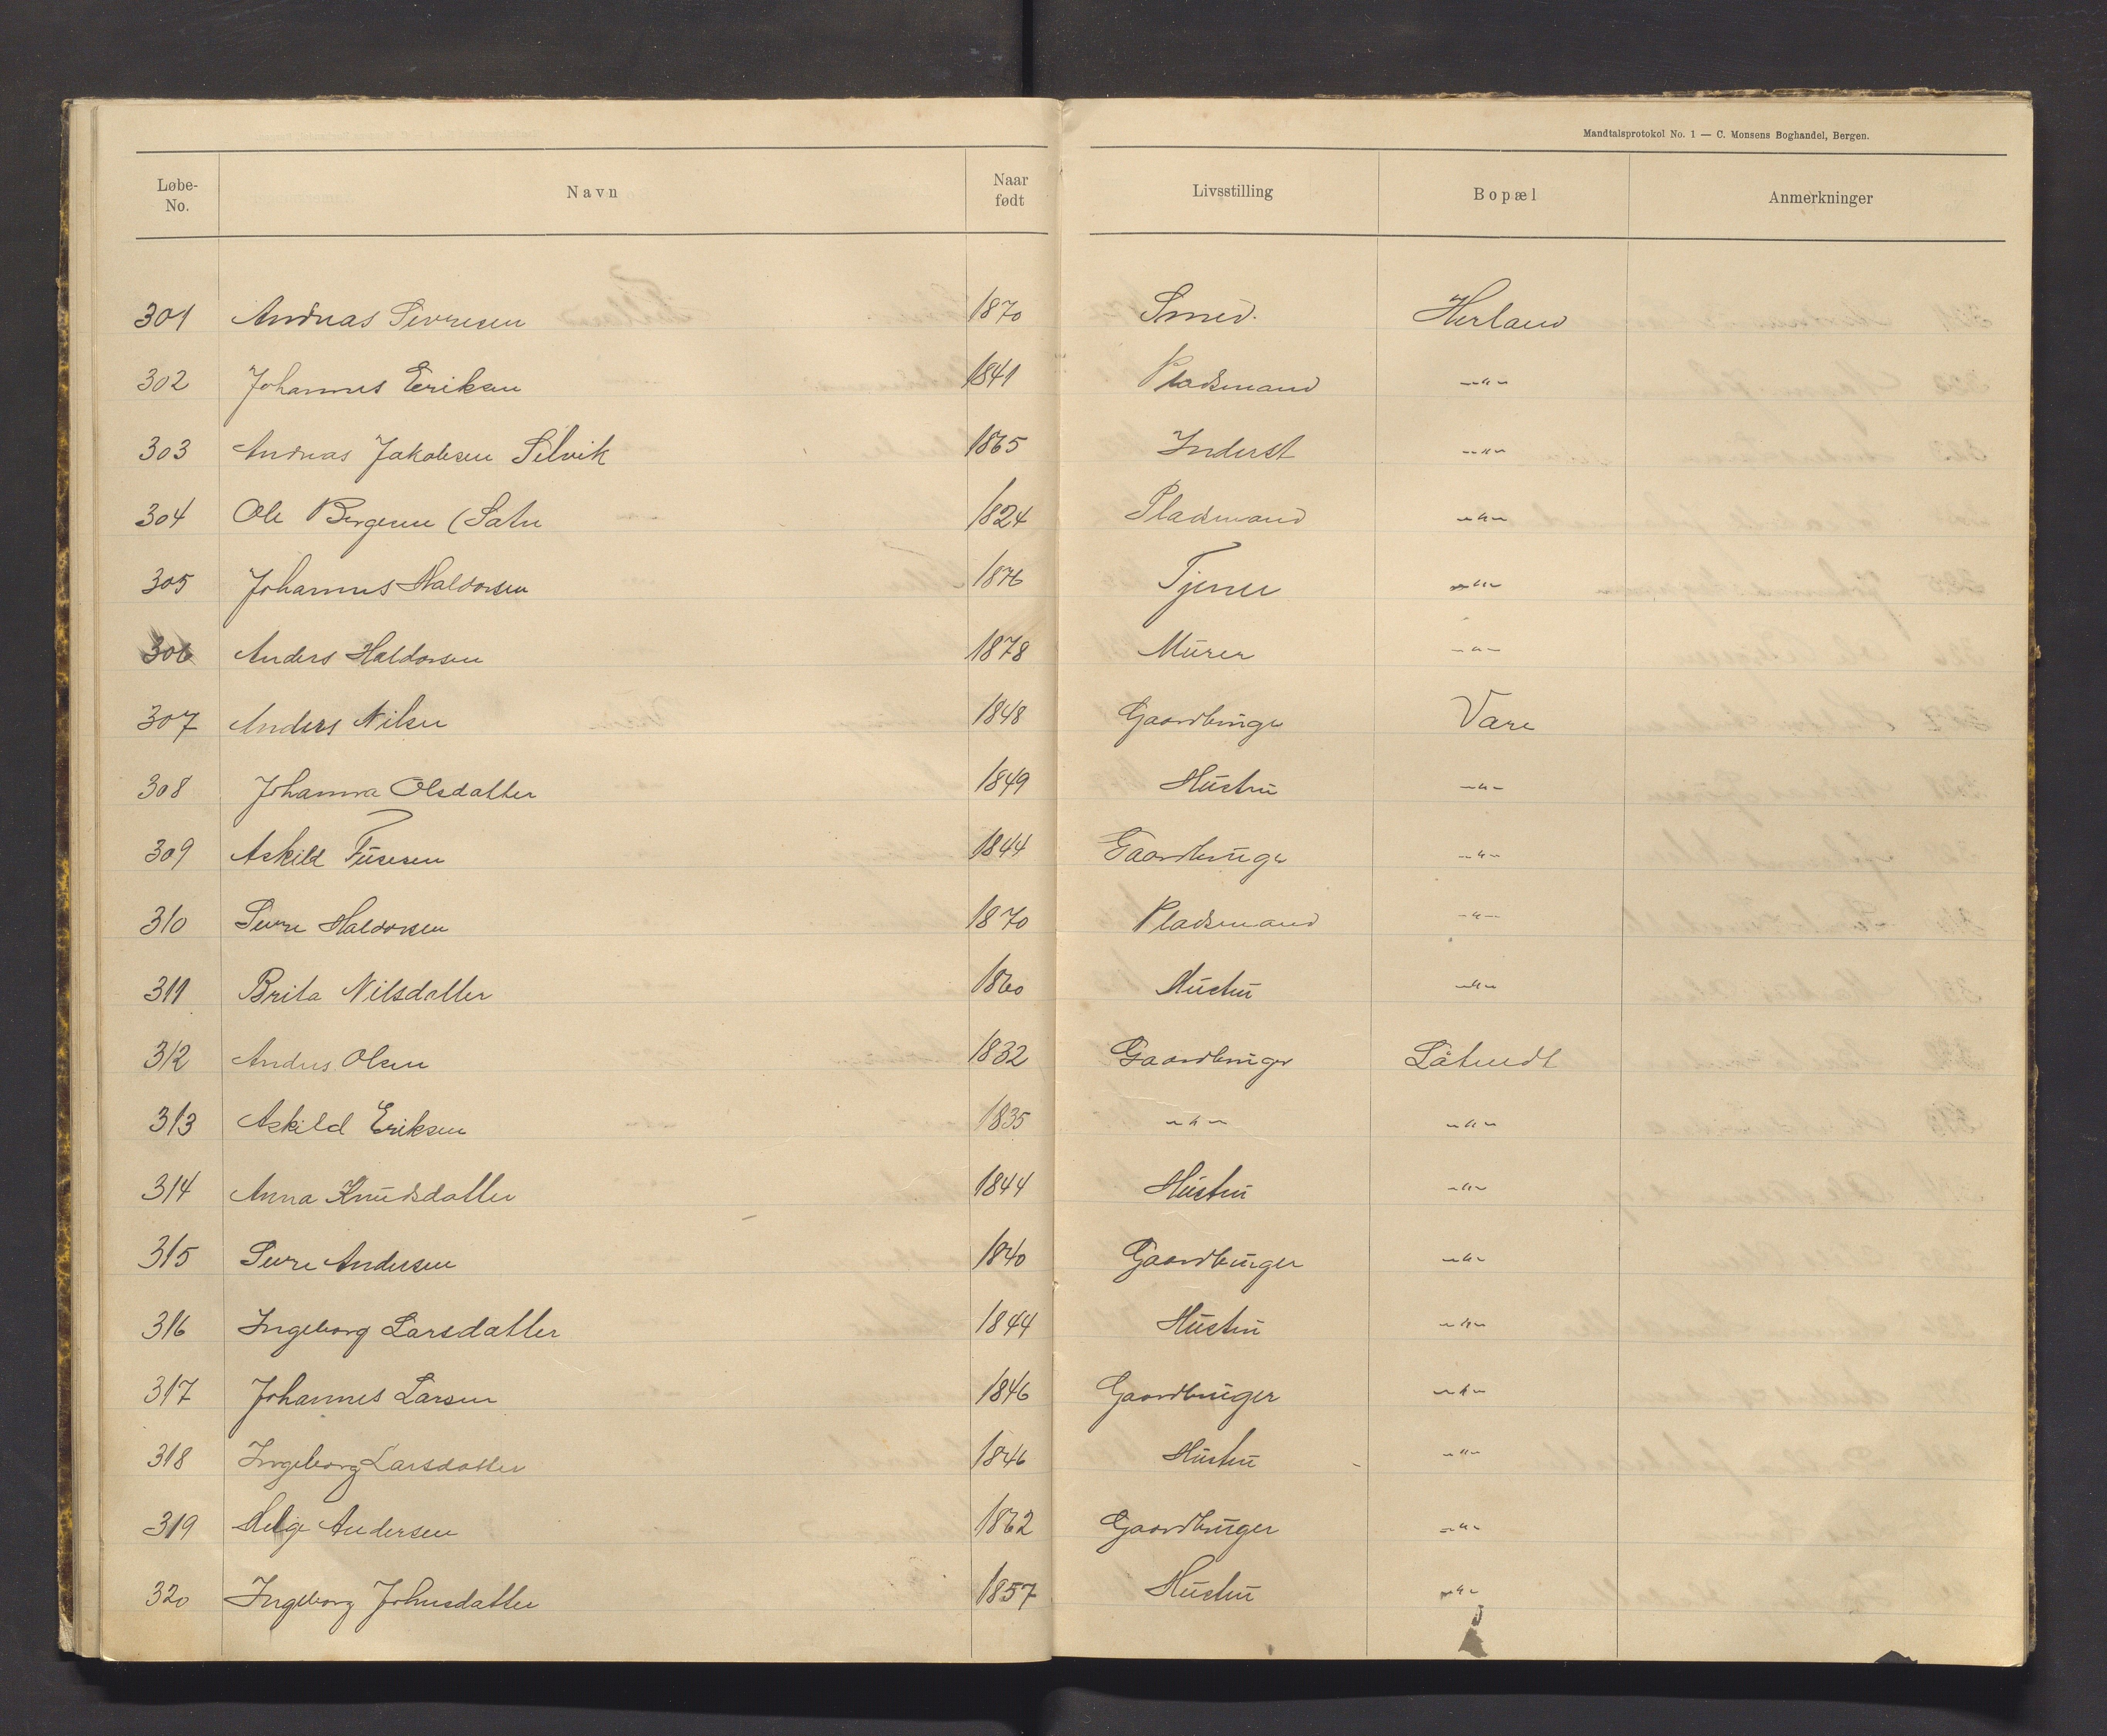 Mandtalsprotokol No. 1 — C. Monsens Boghandel, Bergen.
Løbe-No. Navn Naar født Livsstilling Bopæl Anmerkninger
301 Andreas Sivresen 1870 Smed. Herland
302 Johannes Eriksen 1841 Pladsmand -"-
303 Andreas Jakobsen Selvik 1865 Inderst -"-
304 Ole Bergesen (Satre 1824 Pladsmand -"-
305 Johannes Haldorsen 1876 Tjener -"-
306 Anders Haldorsen 1878 Murer -"-
307 Anders Nilsen 1848 Gaardbruger Vare
308 Johanna Olsdatter 1849 Hustru -"-
309 Askild Tuesen 1844 Gaardbruger -"-
310 Sivre Haldorsen 1870 Pladsmand -"-
311 Brita Nilsdatter 1860 Hustru -"-
312 Anders Olsen 1832 Gaardbruger
313 Askild Eriksen 1835 -"- -"-
314 Anna Knudsdatter 1844 Hustru -"-
315 Sivre Andersen 1840 Gaardbruger -"-
316 Ingeborg Larsdatter 1844 Hustru -"-
317 Johannes Larsen 1846 Gaardbruger -"-
318 Ingeborg Larsdatter 1846 Hustru -"-
319 Helge Andersen 1862 Gaardbruger -"-
320 Ingeborg Johnsdatter 1857 Hustru -"-